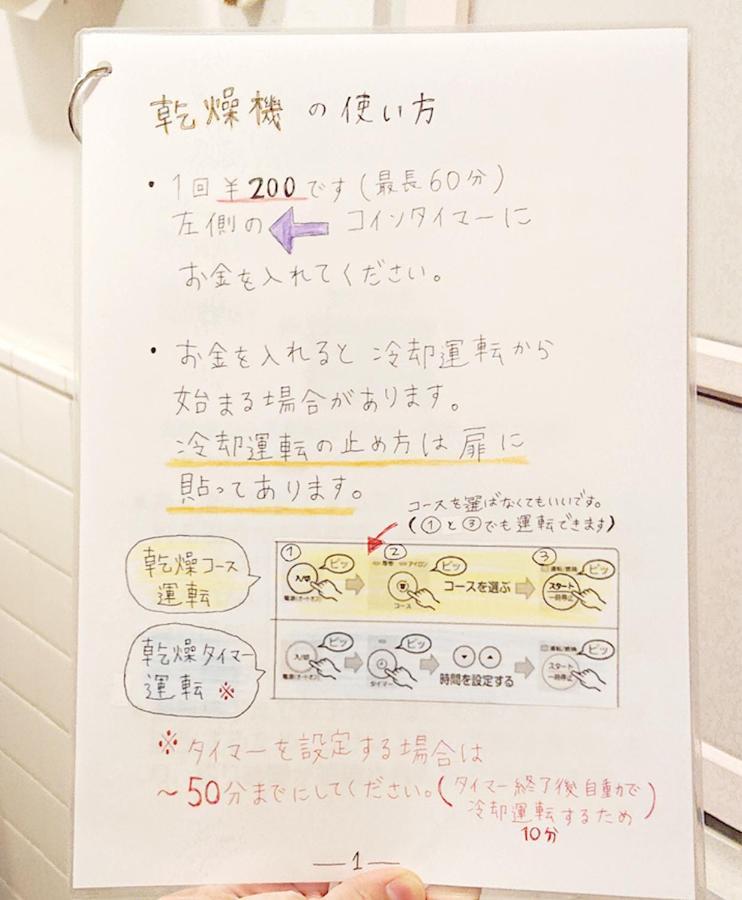 乾燥機の使い方
・1回¥200です(最長60分)
左側の コインタイマーに
お金を入れてください。
・お金を入れると冷却運転から
始まる場合があります。
冷却運転の止め方は扉に
貼ってあります。
コースを選ばなくてもいいです。
(①と③でも運転できます)
乾燥コース
運転
① ② ③
ピッ ピッ ピッ
入/切 コースを選ぶ スタート
一時停止
電源(オートオフ) コース
乾燥タイマー
運転 ※
ピッ ピッ ピッ
入/切 スタート
一時停止
電源(オートオフ) タイマー 時間を設定する
※タイマーを設定する場合は
~50分までにしてください。(タイマー終了後自動で
冷却運転するため)
10分
—1—